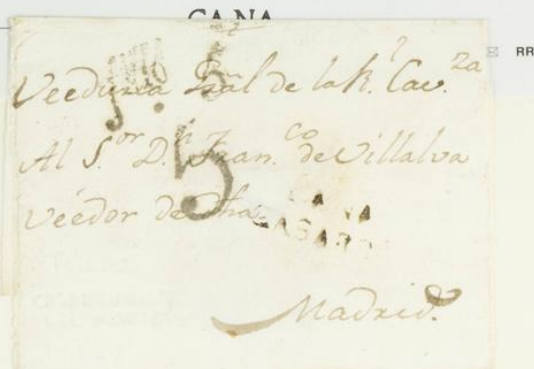 CA NA
RR
5
Veeduria Gral de la R.l Cav.za
Al S.or D.n Fran.co de Villalva
5
Veedor de dha
CA NA
Madrid.